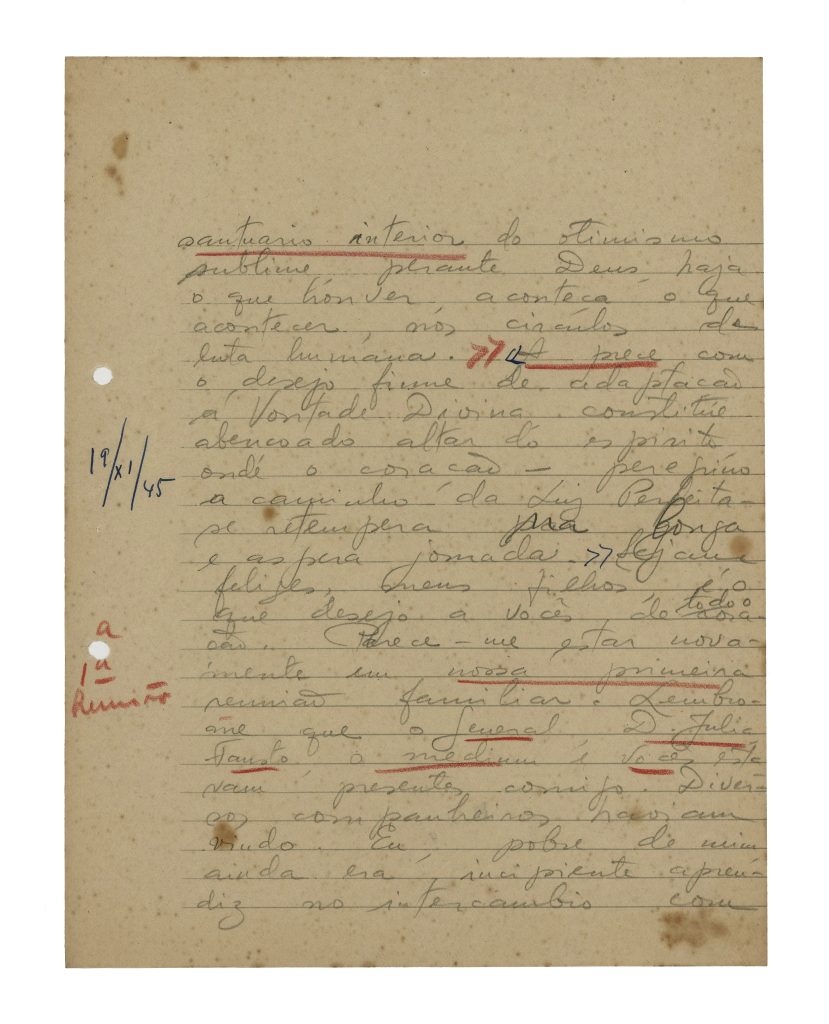 santuario interior do otimismo
sublime perante Deus haja
o que houver, aconteça o que
acontecer, nos circulos da
luta humana. >> « A prece com
o desejo firme de adaptação
á Vontade Divina constitúe
abençoado altar do espirito
onde o coração – peregrino
a caminho da Luz Perfeita –
19/XI/45
se retempera pra longa
e aspera jornada. >> Sejam
felizes, meus filhos, é o
que desejo a vocês de todo o
coração. Parece-me estar nova-
a
1ª
Reunião
mente em nossa primeira
reunião familiar. Lembro-
me que o General, D. Julia,
Fausto, o medium e vocês esta
vam presentes comigo. Diver-
sos companheiros haviam
vindo. Eu, pobre de mim
ainda era incipiente apren-
diz no intercambio com